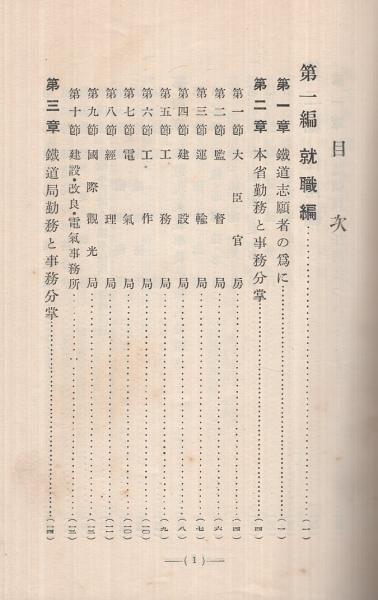 目次
第一編 就職編……(一)
第一章 鐵道志願者の爲に……(一)
第二章 本省勤務と事務分掌……(四)
第一節 大臣官房……(四)
第二節 監督局……(六)
第三節 運輸局……(七)
第四節 建設局……(八)
第五節 工務局……(九)
第六節 工作局……(一〇)
第七節 電氣局……(一〇)
第八節 經理局……(一一)
第九節 國際觀光局……(一三)
第十節 建設・改良・電氣事務所……(一三)
第三章 鐵道局勤務と事務分掌……(一四)
—(1)—